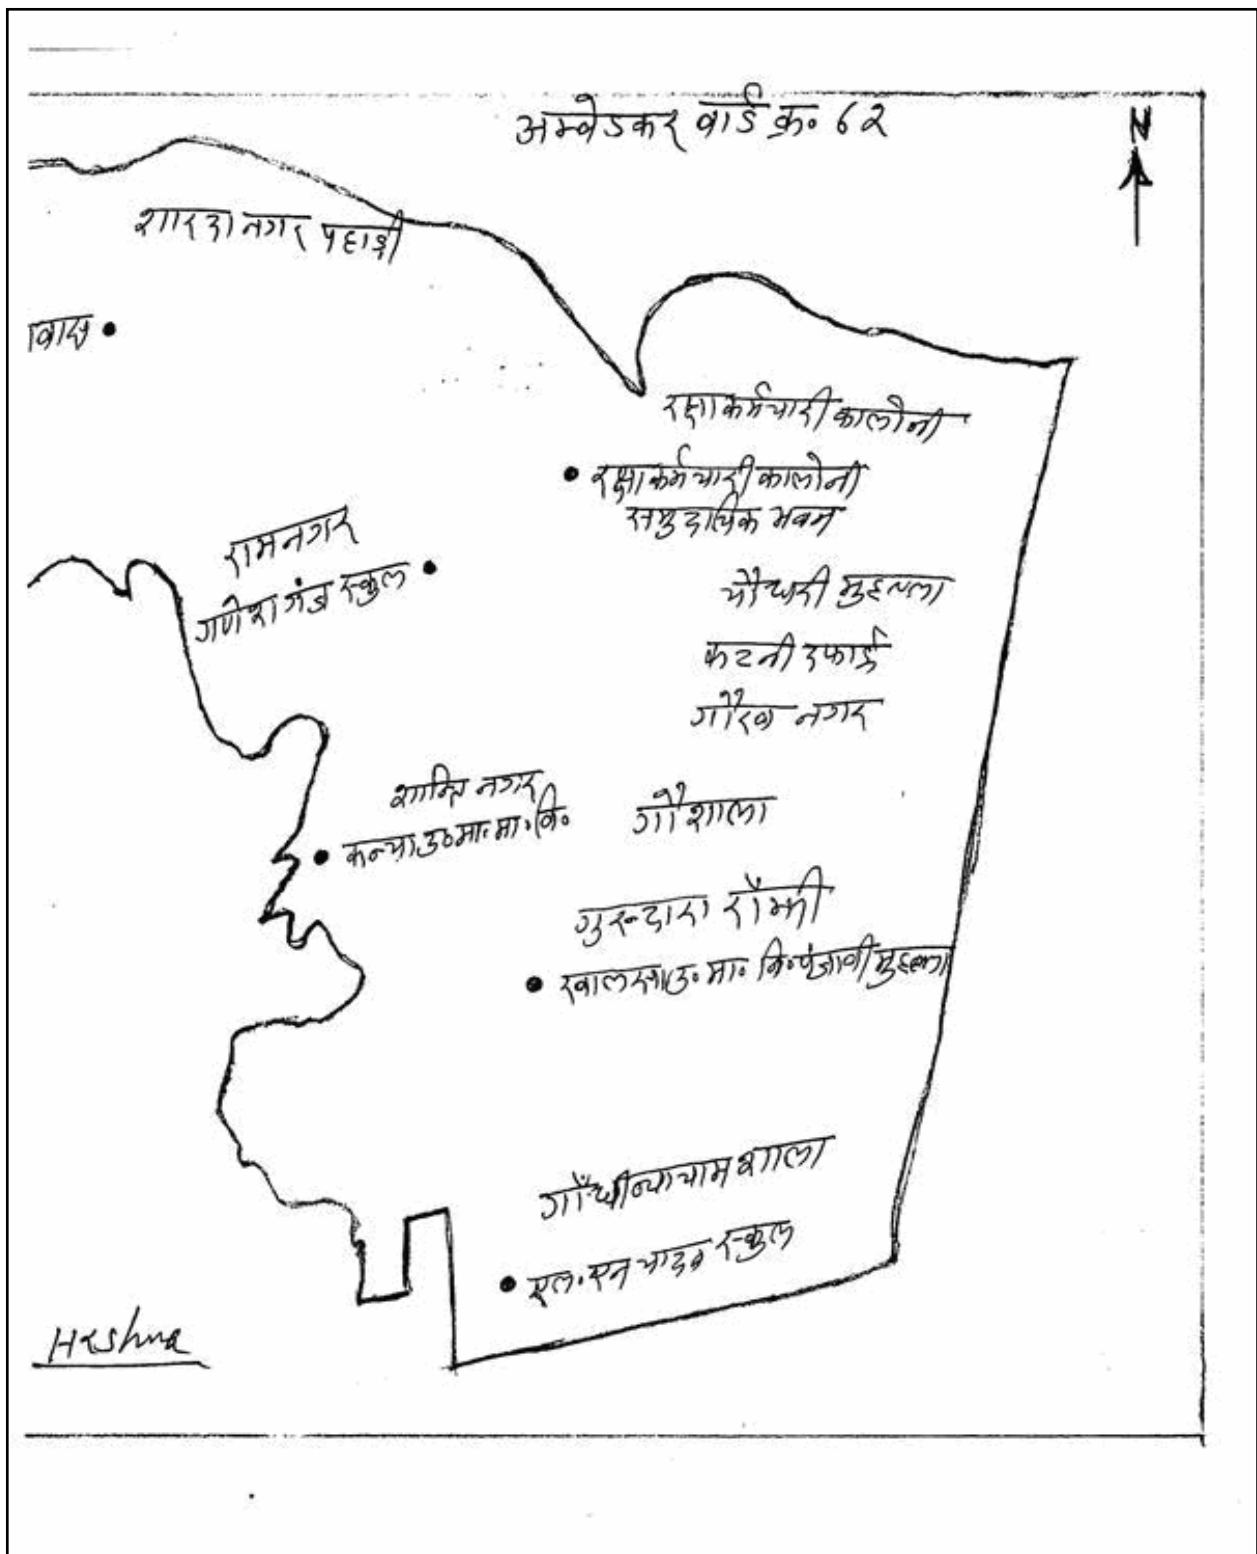 अम्वेडकर वार्ड क्र० ६२
N
शारदा नगर पहाड़ी
रक्षा कर्मचारी कालोनी
रक्षा कर्मचारी कालोनी
समुदायिक भवन
रामनगर
गणेश गंज स्कुल
चौधरी मुहल्ला
कटनी दफाई
गौरव नगर
शान्ति नगर
कन्या उ०मा० मा० वि०
गौशाला
गुरुद्वारा राँझी
खालसा उ० मा० वि० पंजावी मुहल्ला
गाँधी व्यायाम शाला
एल० एन यादव स्कुल